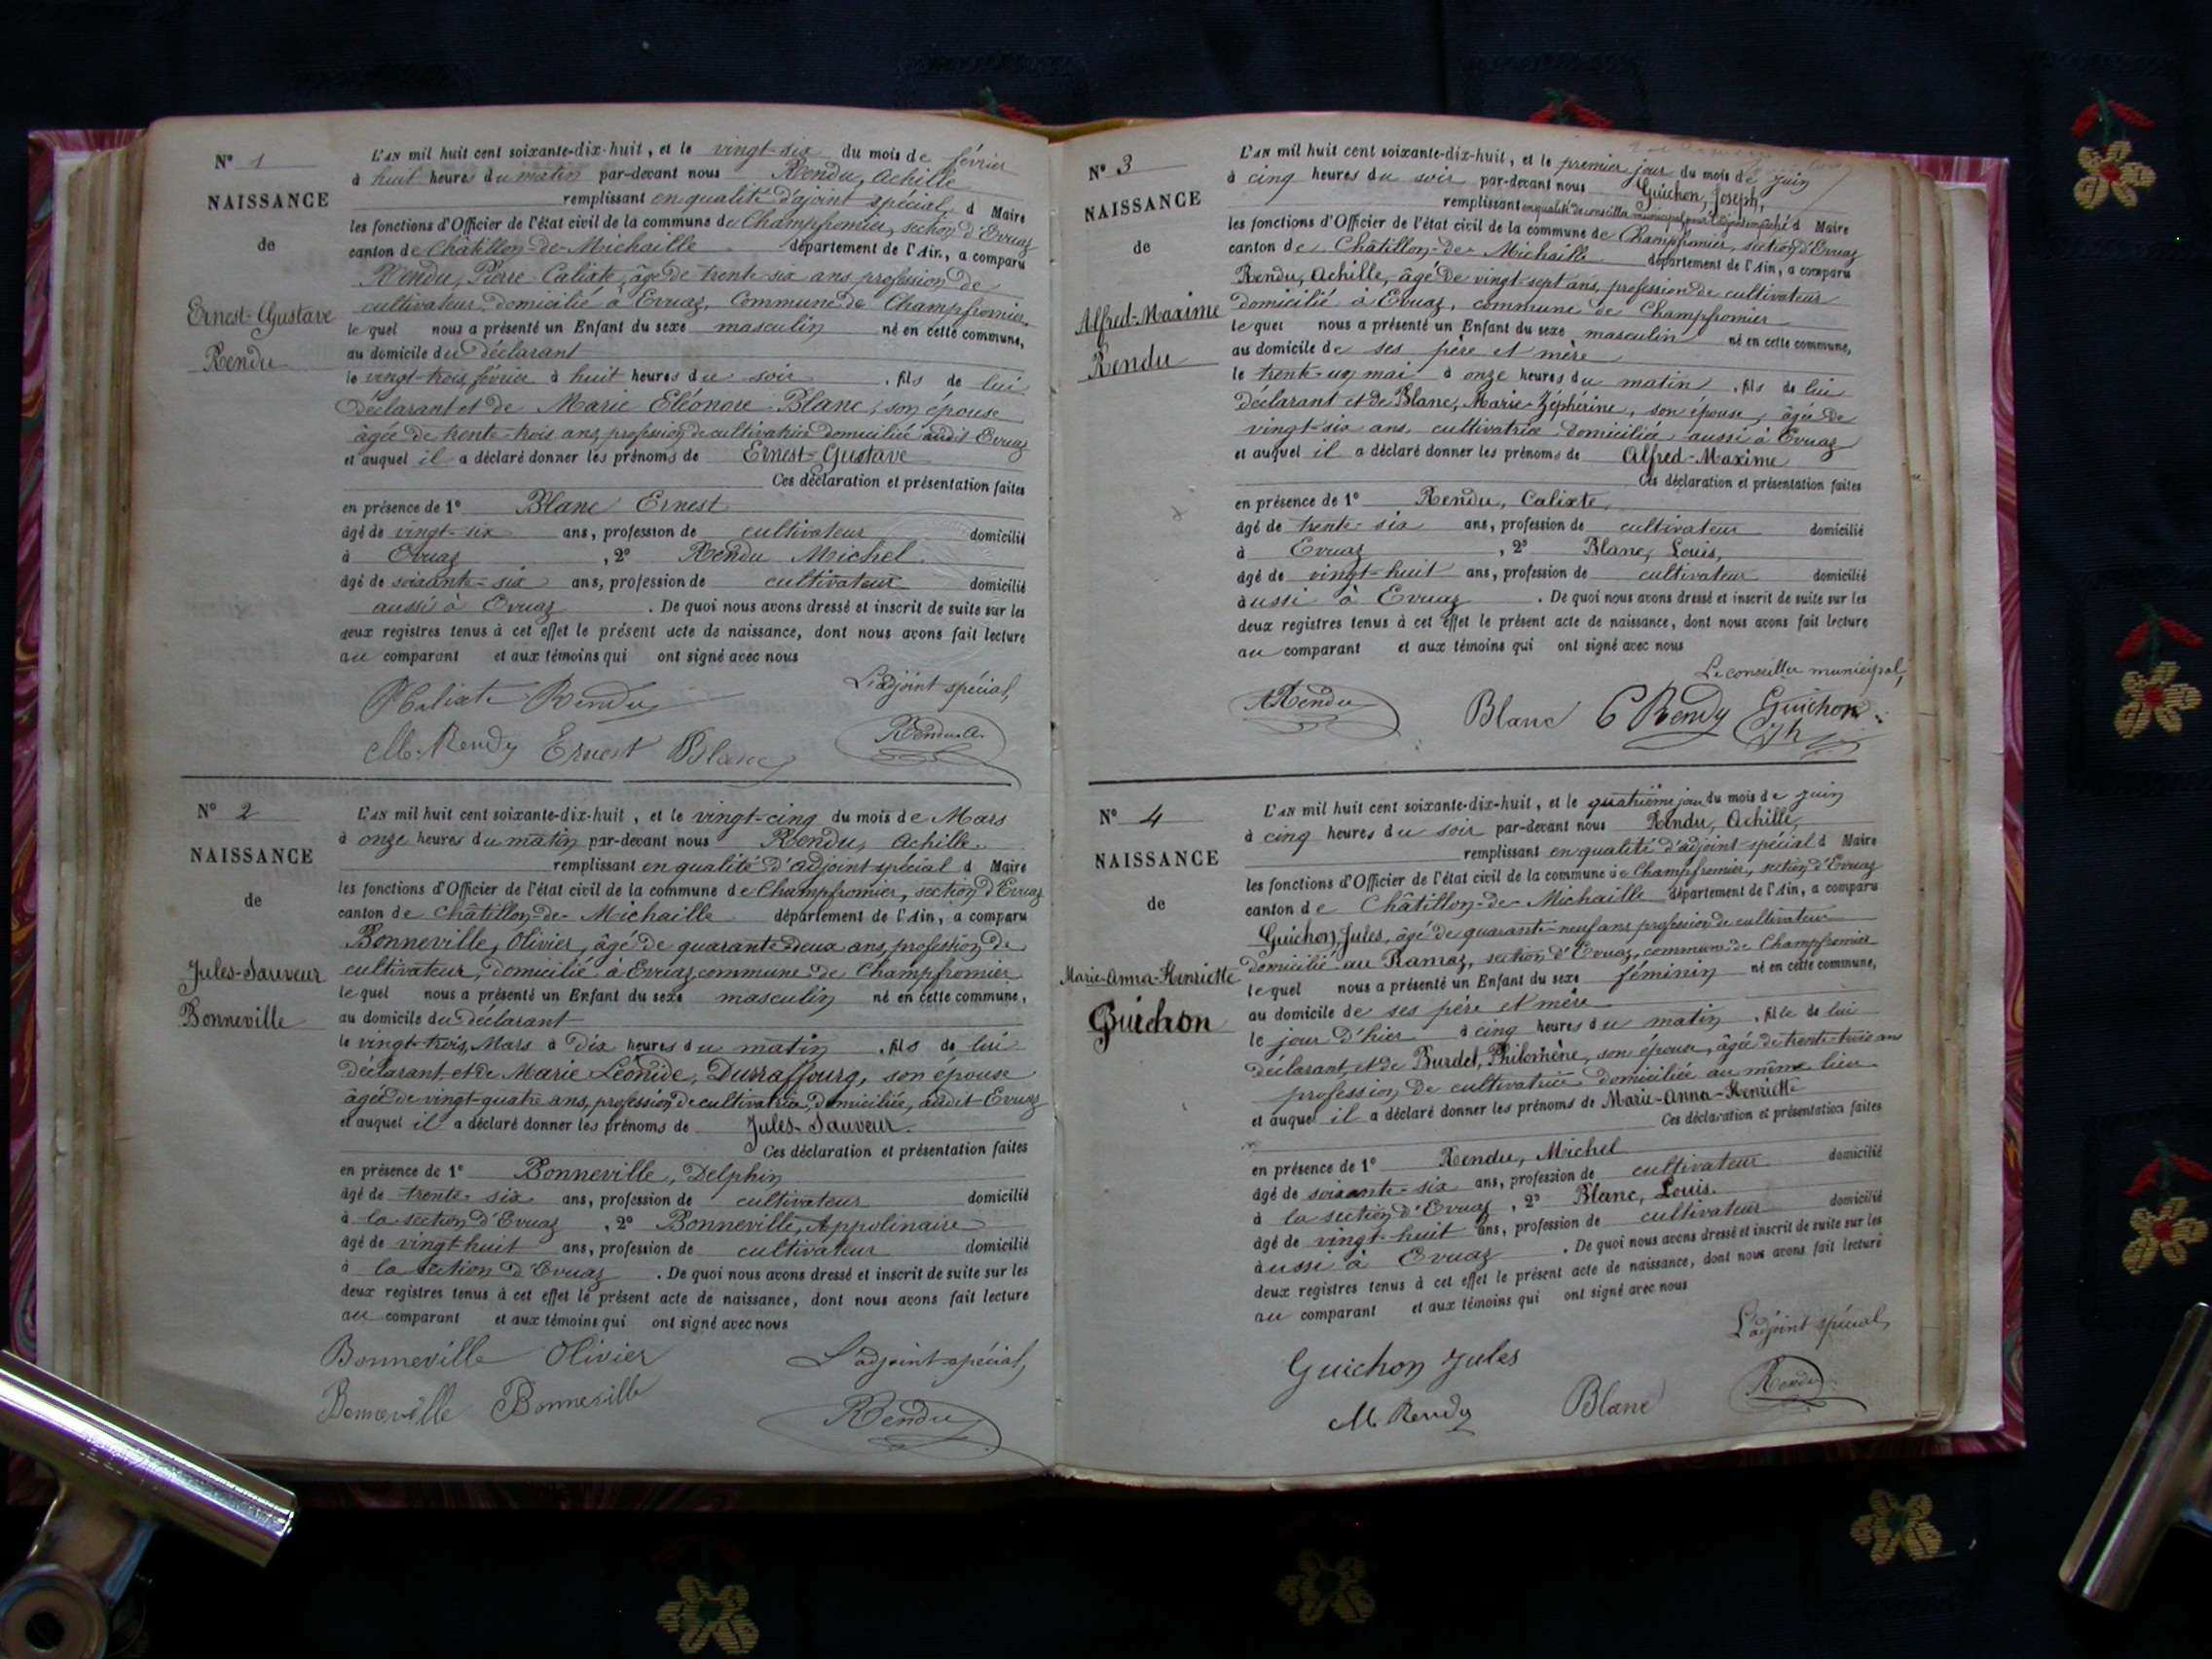 N° 1
NAISSANCE
de
Ernest-Gustave
Rendu
L'AN mil huit cent soixante-dix-huit, et le vingt-six du mois de février
à huit heures du matin par-devant nous Rendu, Achille
remplissant en qualité d'ajoint spécial d Maire
les fonctions d'Officier de l'état civil de la commune de Champfromier, section d'Evuaz
canton de Châtillon-de-Michaille département de l'Ain, a comparu
Rendu, Pierre Calixte, âgé de trente six ans profession de
cultivateur domicilié à Evuaz, Commune de Champfromier
lequel nous a présenté un Enfant du sexe masculin né en cette commune,
au domicile du déclarant
le vingt-trois février à huit heures du soir, fils de lui
déclarant et de Marie Eléonore Blanc, son épouse
âgée de trente-trois ans, profession de cultivatrice domiciliée audit Evuaz
et auquel il a déclaré donner les prénoms de Ernest-Gustave
Ces déclaration et présentation faites
en présence de 1° Blanc Ernest
âgé de vingt-six ans, profession de cultivateur domicilié
à Evuaz, 2° Rendu Michel
âgé de soixante-six ans, profession de cultivateur domicilié
aussi à Evuaz. De quoi nous avons dressé et inscrit de suite sur les
deux registres tenus à cet effet le présent acte de naissance, dont nous avons fait lecture
au comparant et aux témoins qui ont signé avec nous
L'adjoint spécial,
Calixte Rendu
M. Rendu Ernest Blanc Rendu A.
N° 2
NAISSANCE
de
Jules-Sauveur
Bonneville
L'AN mil huit cent soixante-dix-huit, et le vingt-cinq du mois de Mars
à onze heures du matin par-devant nous Rendu, Achille.
remplissant en qualité d'adjoint spécial d Maire
les fonctions d'Officier de l'état civil de la commune de Champfromier, section d'Evuaz
canton de Châtillon-de-Michaille département de l'Ain, a comparu
Bonneville, Olivier, âgé de quarante-deux ans, profession de
cultivateur, domicilié à Evuaz commune de Champfromier
lequel nous a présenté un Enfant du sexe masculin né en cette commune,
au domicile du déclarant
le vingt-trois Mars à dix heures du matin, fils de lui
déclarant, et de Marie Léonide, Durraffourg, son épouse
âgée de vingt-quatre ans, profession de cultivatrice, domiciliée, audit Evuaz
et auquel il a déclaré donner les prénoms de Jules-Sauveur.
Ces déclaration et présentation faites
en présence de 1° Bonneville, Delphin
âgé de trente-six ans, profession de cultivateur domicilié
à la section d'Evuaz, 2° Bonneville, Appolinaire
âgé de vingt-huit ans, profession de cultivateur domicilié
à la section d'Evuaz. De quoi nous avons dressé et inscrit de suite sur les
deux registres tenus à cet effet le présent acte de naissance, dont nous avons fait lecture
au comparant et aux témoins qui ont signé avec nous
Bonneville Olivier L'adjoint spécial,
Bonneville Bonneville Rendu
N° 3
NAISSANCE
de
Alfred-Maxime
Rendu
L'AN mil huit cent soixante-dix-huit, et le premier jour du mois de juin
à cinq heures du soir par-devant nous Guichon, Joseph,
remplissant en qualité de conseiller municipal pour l'adjoint empêché d Maire
les fonctions d'Officier de l'état civil de la commune de Champfromier, section d'Evuaz
canton de Châtillon-de-Michaille département de l'Ain, a comparu
Rendu, Achille, âgé de vingt-sept ans, profession de cultivateur
domicilié à Evuaz, commune de Champfromier
lequel nous a présenté un Enfant du sexe masculin né en cette commune,
au domicile de ses père et mère
le trente-un mai à onze heures du matin, fils de lui
déclarant et de Blanc, Marie-Zéphérine, son épouse, âgée de
vingt-six ans, cultivatrice domiciliée aussi à Evuaz
et auquel il a déclaré donner les prénoms de Alfred-Maxime
Ces déclaration et présentation faites
en présence de 1° Rendu, Calixte,
âgé de trente-six ans, profession de cultivateur domicilié
à Evuaz, 2° Blanc, Louis,
âgé de vingt-huit ans, profession de cultivateur domicilié
aussi à Evuaz. De quoi nous avons dressé et inscrit de suite sur les
deux registres tenus à cet effet le présent acte de naissance, dont nous avons fait lecture
au comparant et aux témoins qui ont signé avec nous
Le conseiller municipal,
A Rendu Blanc C Rendu Guichon
Jh
N° 4
NAISSANCE
de
Marie-Anna-Henriette
Guichon
L'AN mil huit cent soixante-dix-huit, et le quatrième jour du mois de juin
à cinq heures du soir par-devant nous Rendu, Achille,
remplissant en qualité d'adjoint spécial d Maire
les fonctions d'Officier de l'état civil de la commune de Champfromier, section d'Evuaz
canton de Châtillon-de-Michaille département de l'Ain, a comparu
Guichon, Jules, âgé de quarante-neuf ans profession de cultivateur
domicilié au Ramaz, section d'Evuaz, commune de Champfromier
lequel nous a présenté un Enfant du sexe féminin né en cette commune,
au domicile de ses père et mère
le jour d'hier à cinq heures du matin, fille de lui
déclarant, et de Burdet, Philomène, son épouse, âgée de trente-trois ans
profession de cultivatrice domiciliée au même lieu
et auquel il a déclaré donner les prénoms de Marie-Anna-Henriette
Ces déclaration et présentation faites
en présence de 1° Rendu, Michel
âgé de soixante-six ans, profession de cultivateur domicilié
à la section d'Evuaz, 2° Blanc, Louis.
âgé de vingt-huit ans, profession de cultivateur domicilié
aussi à Evuaz. De quoi nous avons dressé et inscrit de suite sur les
deux registres tenus à cet effet le présent acte de naissance, dont nous avons fait lecture
au comparant et aux témoins qui ont signé avec nous
L'adjoint spécial,
Guichon Jules
M. Rendu Blanc Rendu